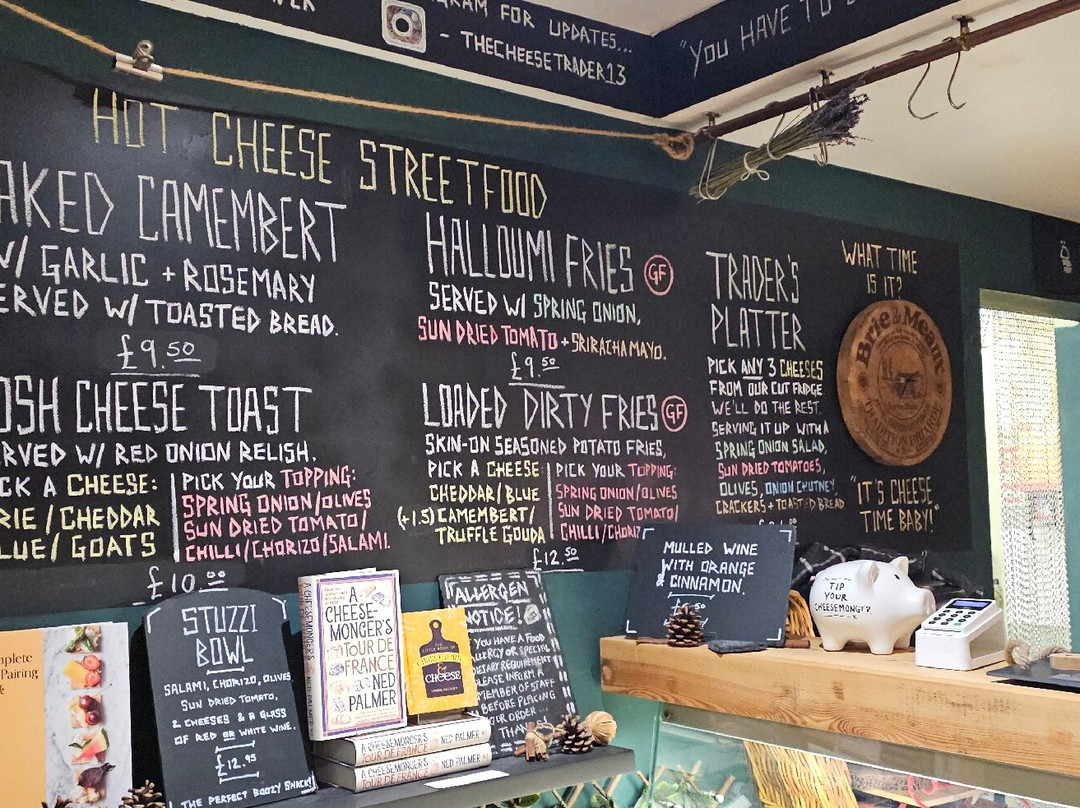 FOR UPDATES...
- THECHEESETRADER13
"YOU HAVE TO
HOT CHEESE STREETFOOD
AKED CAMEMBERT
W/ GARLIC + ROSEMARY
ERVED W/ TOASTED BREAD.
£9.50
OSH CHEESE TOAST
RVED W/ RED ONION RELISH.
CK A CHEESE:
RIE / CHEDDAR
LUE / GOATS
PICK YOUR TOPPING:
SPRING ONION/OLIVES
SUN DRIED TOMATO/
CHILLI/CHORIZO/SALAMI.
£10.00
HALLOUMI FRIES GF
SERVED W/ SPRING ONION,
SUN DRIED TOMATO + SRIRACHA MAYO.
£9.50
LOADED DIRTY FRIES GF
SKIN-ON SEASONED POTATO FRIES,
PICK A CHEESE:
CHEDDAR/BLUE
(+1.5) CAMEMBERT/
TRUFFLE GOUDA
PICK YOUR TOPPING:
SPRING ONION/OLIVES
SUN DRIED TOMATO/
CHILLI/CHORIZ
£12.50
TRADER'S
PLATTER
PICK ANY 3 CHEESES
FROM OUR CUT FRIDGE
WE'LL DO THE REST.
SERVING IT UP WITH A
SPRING ONION SALAD,
SUN DRIED TOMATOES,
OLIVES, ONION CHUTNEY,
CRACKERS + TOASTED BREAD
WHAT TIME
IS IT?
Brie de Meaux
"IT'S CHEESE
TIME BABY!"
MULLED WINE
WITH ORANGE
& CINNAMON.
TIP
YOUR
CHEESEMONGER
STUZZI
BOWL
SALAMI, CHORIZO, OLIVES
SUN DRIED TOMATO,
2 CHEESES & A GLASS
OF RED OR WHITE WINE.
£12.95
THE PERFECT BOOZY SNACK!
A
CHEESE-
MONGER'S
TOUR DE
FRANCE
NED
PALMER
Cheese
A CHEESEMONGER'S TOUR DE FRANCE NED PALMER
A CHEESEMONGER'S TOUR DE FRANCE NED PALMER
ALLERGEN
NOTICE!
YOU HAVE A FOOD
LLERGY OR SPECIAL
DIETARY REQUIREMENT
PLEASE INFORM A
MEMBER OF STAFF
BEFORE PLACING
YOUR ORDER...
THAN
mplete
Pairing